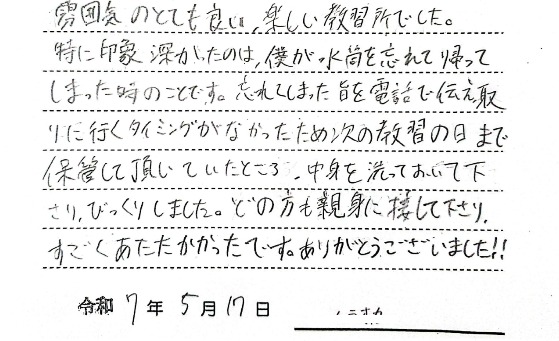 雰囲気のとても良い、楽しい教習所でした。
特に印象深かったのは、僕が水筒を忘れて帰って
しまった時のことです。忘れてしまった旨を電話で伝え取
りに行くタイミングがなかったため次の教習の日まで
保管して頂いていたところ、中身を洗っておいて下
さり、びっくりしました。どの方も親身に接して下さり、
すごくあたたかかったです。ありがとうございました!!
令和 7 年 5 月 17 日